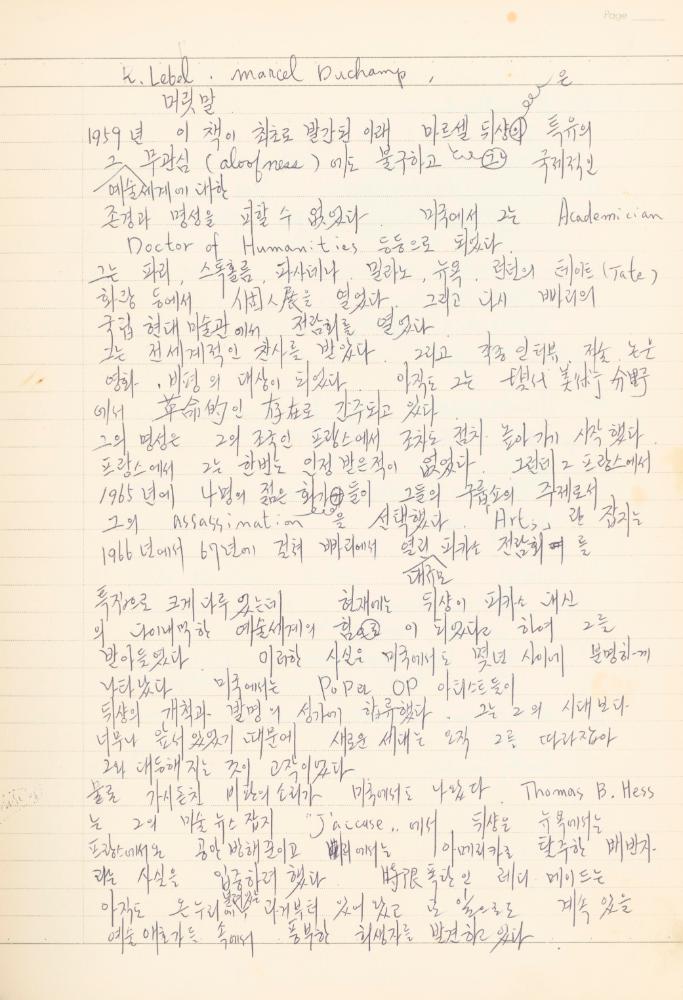 Page
R. Lebel . Marcel Duchamp,
머릿말
1959년 이 책이 최초로 발간된 이래 마르셀 뒤샹의 은 특유의
그 무관심 (aloofness) 에도 불구하고 국제적인
예술세계에 대한
존경과 명성을 피할 수 없었다. 미국에서 그는 Academician
Doctor of Humanities 등등으로 되었다.
그는 파리, 스톡홀름, 파사데나, 밀라노, 뉴욕, 런던의 테이트(Tate)
화랑 등에서 個人展을 열었다. 그리고 다시 빠리의
국립 현대 미술관에서 전람회를 열었다
그는 전세계적인 찬사를 받았다. 그리고 각종 인터뷰, 저술, 논문
영화, 비평의 대상이 되었다. 아직도 그는 美術 分野
에서 革命的인 存在로 간주되고 있다.
그의 명성은 그의 조국인 프랑스에서 조차도 점차 높아가기 시작했다.
프랑스에서 그는 한번도 인정 받은적이 없었다. 그런데 그 프랑스에서
1965년에 나명의 젊은 화가들이 그들의 구릅쇼의 주제로서
그의 assassination 을 선택했다. "Arts" 란 잡지는
1966년에서 67년에 걸쳐 빠리에서 열린 피카소 전람회를
대규모
특집으로 크게 다루었는데 현재에는 뒤샹이 피카소 대신
의 다이내믹한 예술세계의 힘 이 되었다고 하여 그를
받아들였다. 이러한 사실은 미국에서도 몇년 사이에 분명하게
나타났다. 미국에서는 POP과 OP 아티스트들이
뒤샹의 개척과 발명의 성가에 합류했다. 그는 그의 시대보다
너무나 앞서 있었기 때문에 새로운 세대는 오직 그를 따라잡아
그와 대등해지는 것이 고작이었다
물론 가시돋친 비판의 소리가 미국에서도 나왔다. Thomas B. Hess
는 그의 미술 뉴스 잡지 "J'accuse" 에서 뒤샹은 뉴욕에서는
프랑스에서온 공안 방해꾼이고 빠리에서는 아메리카로 탈주한 배반자
라는 사실을 입증하려 했다. 時限폭탄인 레디 메이드는
아직도 온누리 과거부터 있어 왔고 또 앞으로도 계속 있을
예술 애호가들 속에서 풍부한 희생자를 발견하고 있다